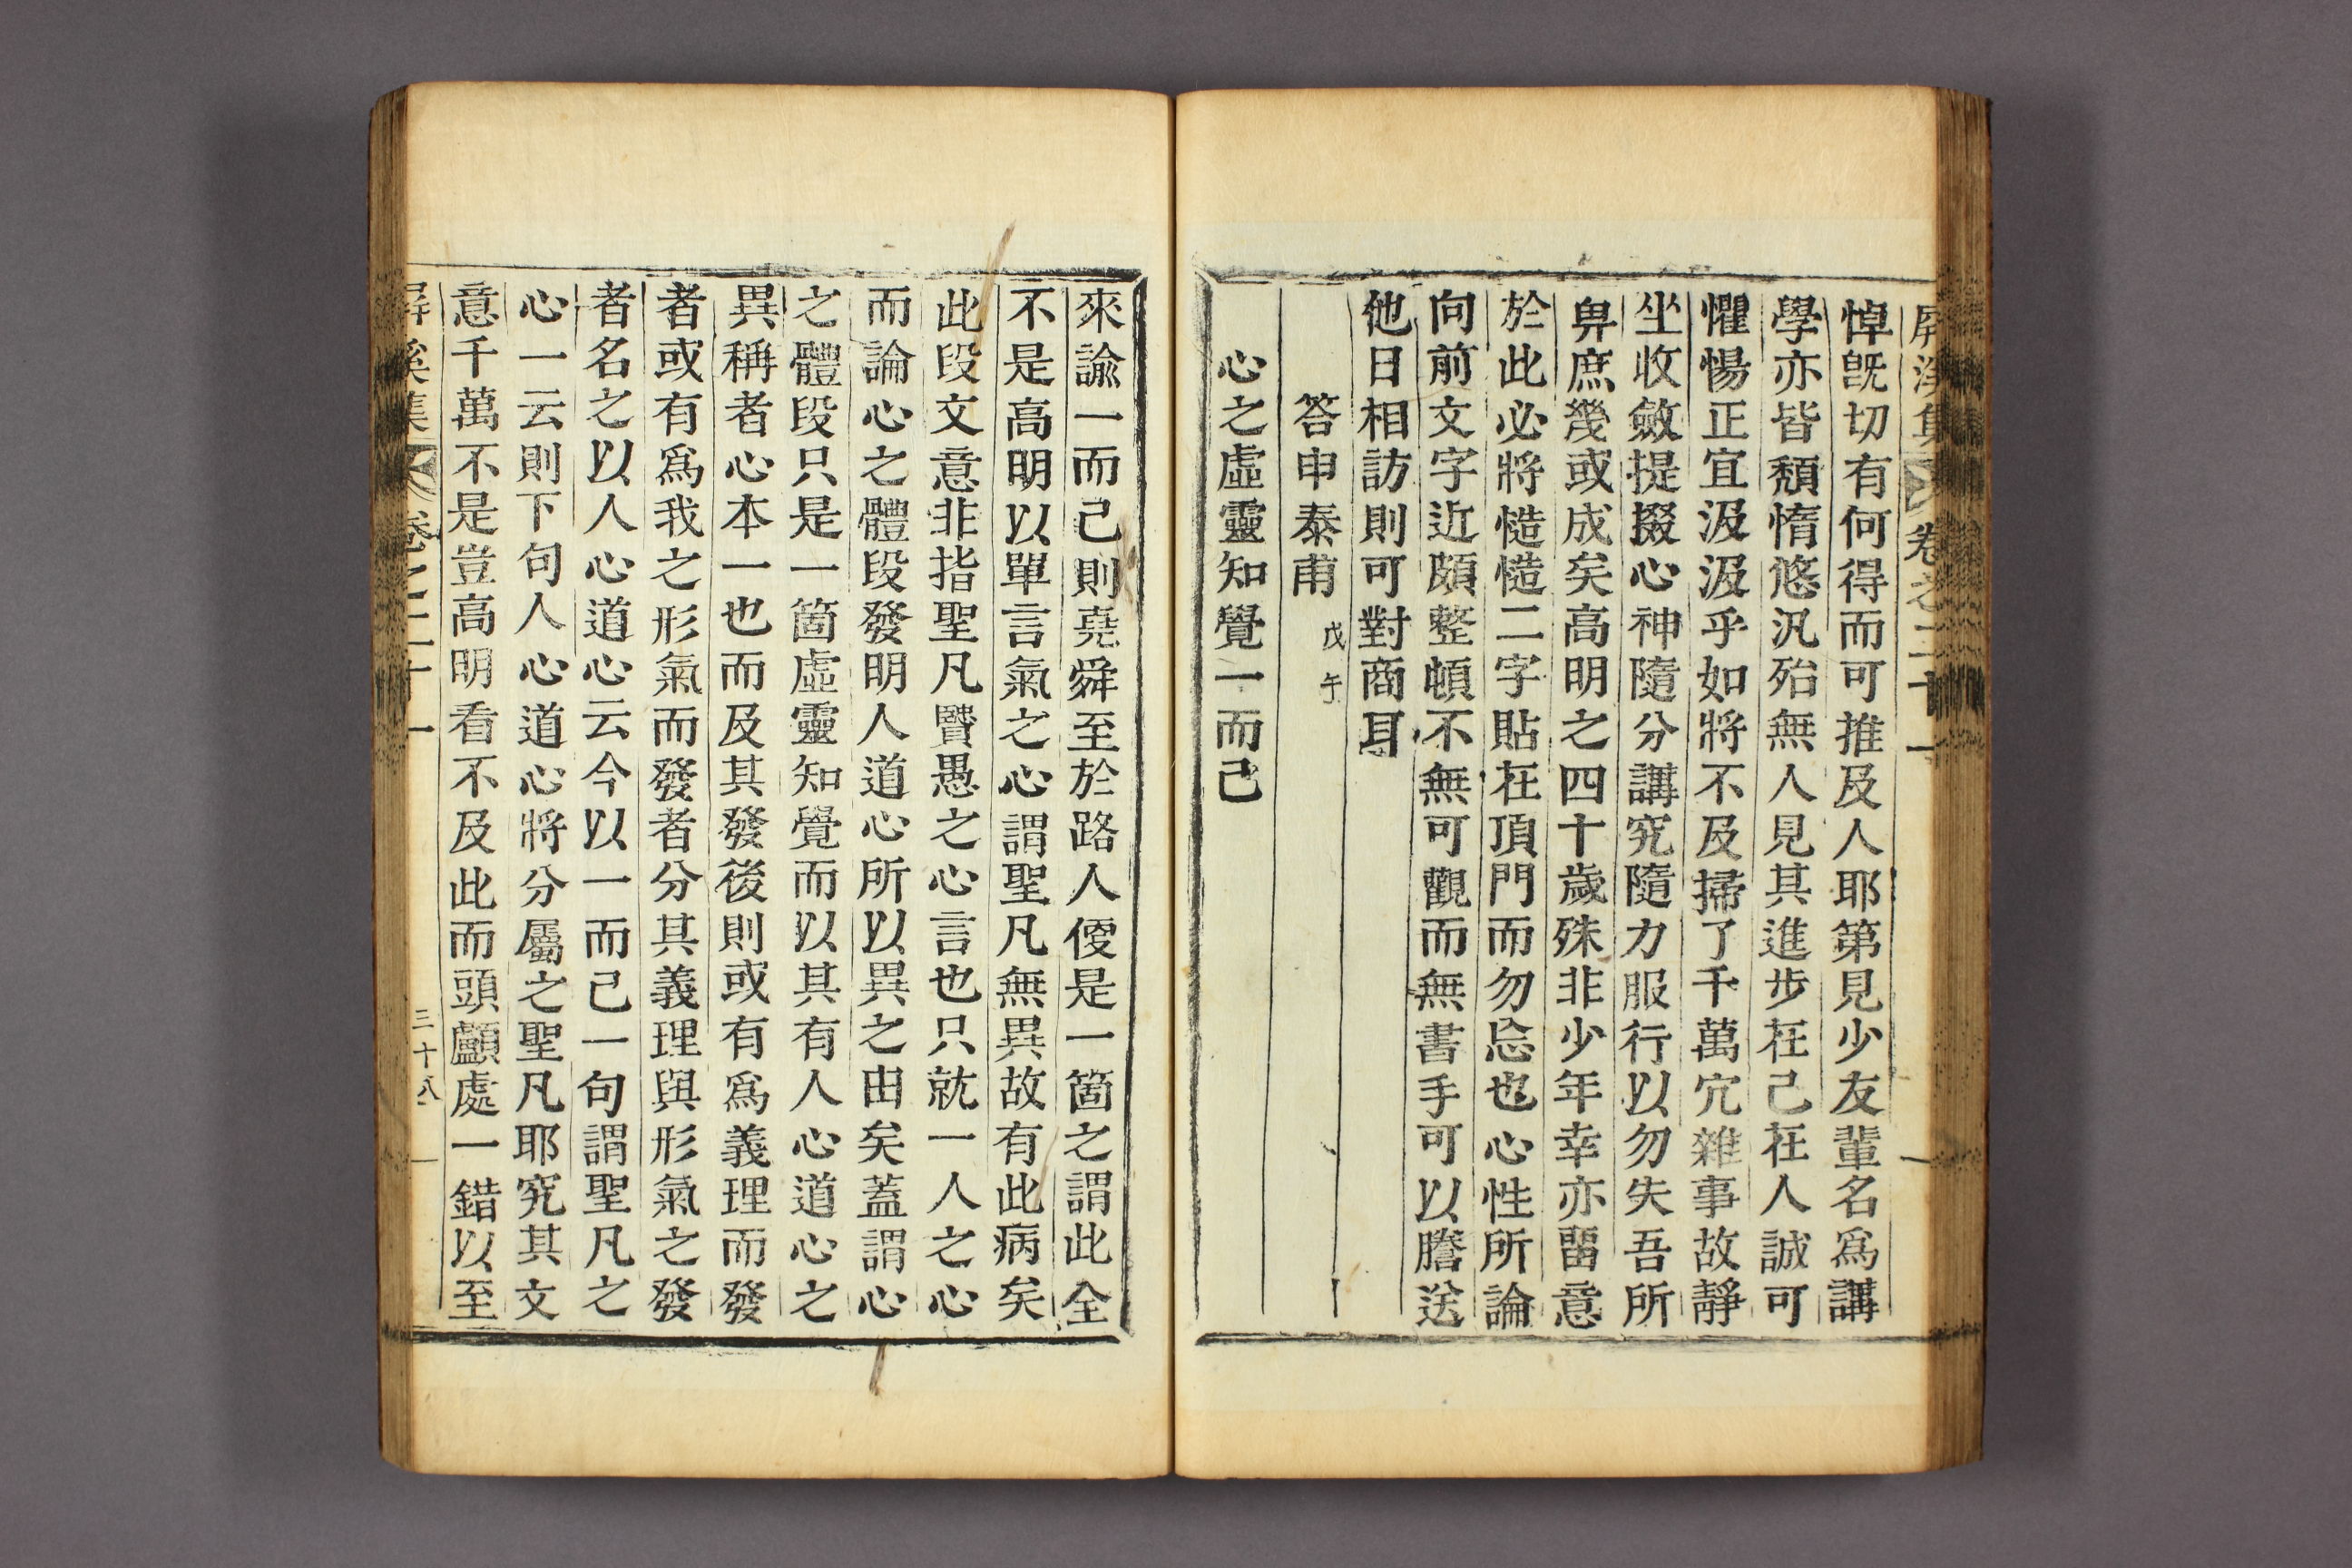 屛溪集 卷之二十一
悼旣切有何得而可推及人耶第見少友輩名爲講
學亦皆頹惰悠汎殆無人見其進步在己在人誠可
懼惕正宜汲汲乎如將不及掃了千萬宂雜事故靜
坐收斂提掇心神隨分講究隨力服行以勿失吾所
畀庶幾或成矣高明之四十歲殊非少年幸亦留意
於此必將慥慥二字貼在頂門而勿忘也心性所論
向前文字近頗整頓不無可觀而無書手可以謄送
他日相訪則可對商耳
答申泰甫 戊午
心之虛靈知覺一而己
來諭一而己則堯舜至於路人便是一箇之謂此全
不是高明以單言氣之心謂聖凡無異故有此病矣
此段文意非指聖凡賢愚之心言也只就一人之心
而論心之體段發明人道心所以異之由矣蓋謂心
之體段只是一箇虛靈知覺而以其有人心道心之
異稱者心本一也而及其發後則或有爲義理而發
者或有爲我之形氣而發者分其義理與形氣之發
者名之以人心道心云今以一而己一句謂聖凡之
心一云則下句人心道心將分屬之聖凡耶究其文
意千萬不是豈高明看不及此而頭顱處一錯以至
屛溪集 卷之二十一 三十八